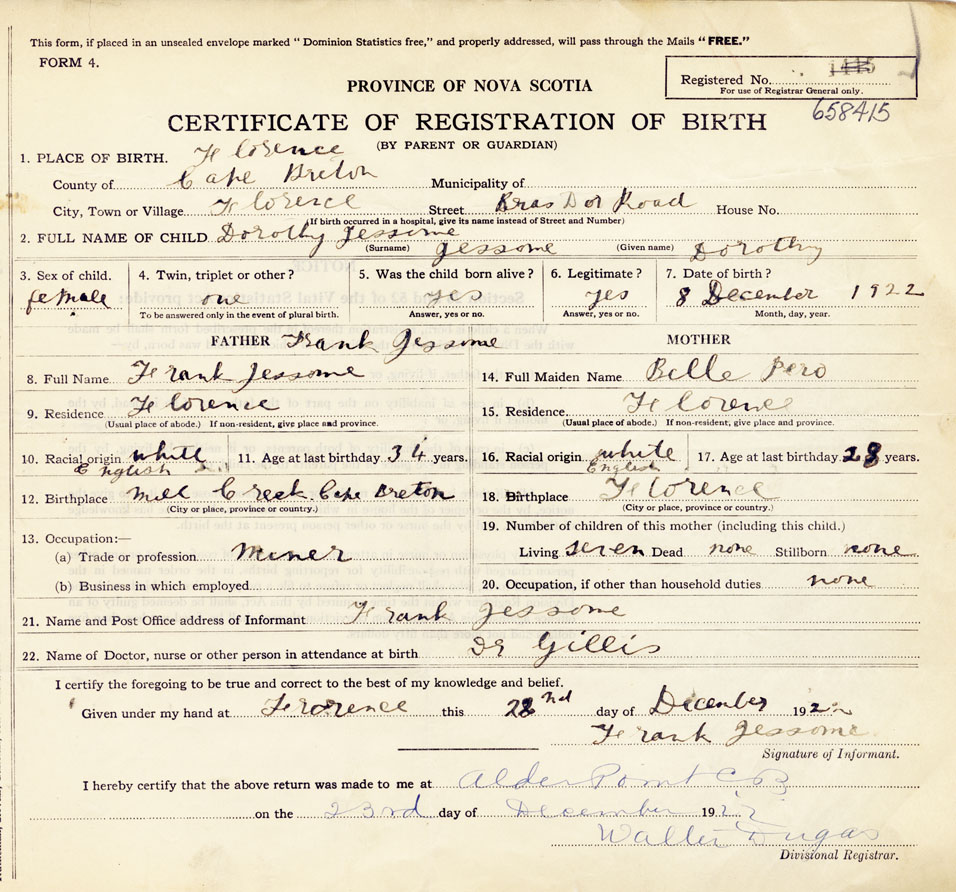 This form, if placed in an unsealed envelope marked "Dominion Statistics free," and properly addressed, will pass through the Mails "FREE."
FORM 4.
Registered No.
For use of Registrar General only.
PROVINCE OF NOVA SCOTIA
658415
CERTIFICATE OF REGISTRATION OF BIRTH
(BY PARENT OR GUARDIAN)
1. PLACE OF BIRTH. Florence
County of Cape Breton Municipality of
City, Town or Village Florence Street Bras Dor Road House No.
(If birth occurred in a hospital, give its name instead of Street and Number)
2. FULL NAME OF CHILD Dorothy Jessome Jessome Dorothy
(Surname) (Given name)
3. Sex of child. 4. Twin, triplet or other? 5. Was the child born alive? 6. Legitimate? 7. Date of birth?
female one yes yes 8 December 1922
To be answered only in the event of plural birth. Answer, yes or no. Answer, yes or no. Month, day, year.
FATHER Frank Jessome MOTHER
8. Full Name Frank Jessome 14. Full Maiden Name Belle Pero
9. Residence Florence 15. Residence. Florence
(Usual place of abode.) If non-resident, give place and province. (Usual place of abode.) If non-resident, give place and province.
10. Racial origin white 11. Age at last birthday 34 years. 16. Racial origin white 17. Age at last birthday 28 years.
English English
12. Birthplace Mill Creek. Cape Breton 18. Birthplace Florence
(City or place, province or country.) (City or place, province or country.)
13. Occupation:— 19. Number of children of this mother (including this child.)
(a) Trade or profession Miner Living seven Dead none Stillborn none
(b) Business in which employed 20. Occupation, if other than household duties none
21. Name and Post Office address of Informant Frank Jessome
22. Name of Doctor, nurse or other person in attendance at birth Dr Gillis
I certify the foregoing to be true and correct to the best of my knowledge and belief.
Given under my hand at Florence this 22nd day of December 1922
Frank Jessome
Signature of Informant.
I hereby certify that the above return was made to me at Alder Point C B
on the 23rd day of December 1922
Walter Dugas
Divisional Registrar.